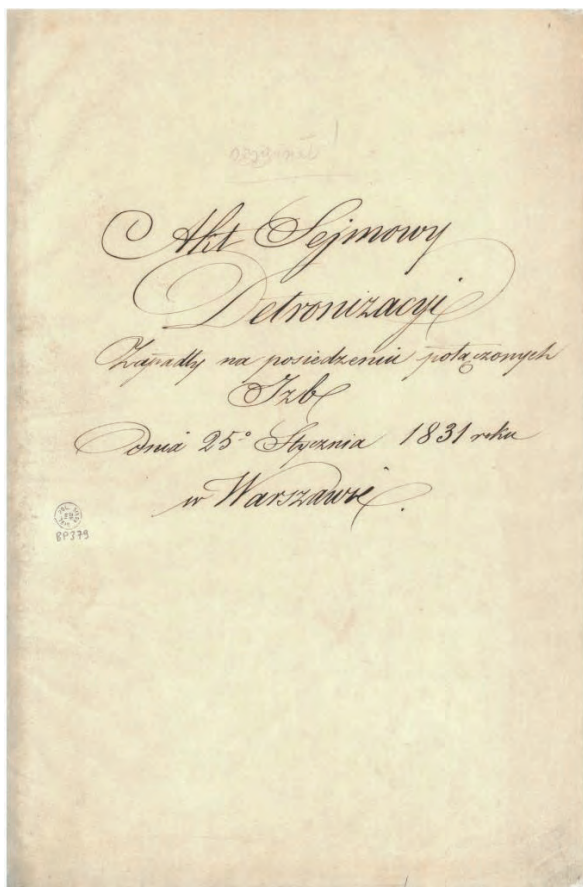 oryginał
Akt Sejmowy
Detronizacyi
Zapadły na posiedzeniu połączonych
Izb
dnia 25º Stycznia 1831 roku
w Warszawie.
BP379